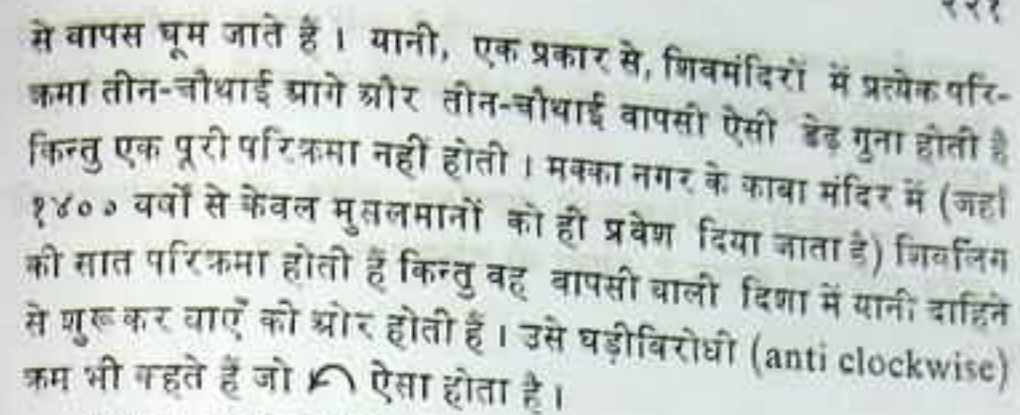 २२१
से वापस घूम जाते हैं । यानी, एक प्रकार से, शिवमंदिरों में प्रत्येक परि-
क्रमा तीन-चौथाई आगे और तीन-चौथाई वापसी ऐसी डेढ़ गुना होती है
किन्तु एक पूरी परिक्रमा नहीं होती । मक्का नगर के काबा मंदिर में (जहाँ
१४०० वर्षों से केवल मुसलमानों को ही प्रवेश दिया जाता है) शिवलिंग
की सात परिक्रमा होती हैं किन्तु वह वापसी वाली दिशा में यानी दाहिने
से शुरू कर बाएँ की ओर होती हैं । उसे घड़ीविरोधी (anti clockwise)
क्रम भी कहते हैं जो ↶ ऐसा होता है ।